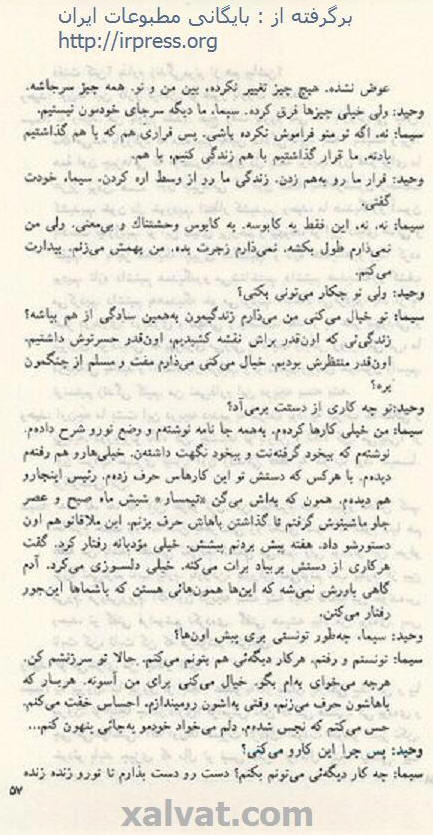 برگرفته از : بایگانی مطبوعات ایران
http://irpress.org
عوض نشده. هیچ چیز تغییر نکرده، بین من و تو. همه چیز سرجاشه.
وحید: ولی خیلی چیزها فرق کرده. سیما، ما دیگه سرجای خودمون نیستیم.
سیما: نه، اگه تو منو فراموش نکرده باشی. پس قراری هم که با هم گذاشتیم
یادته. ما قرار گذاشتیم با هم زندگی کنیم، با هم.
وحید: قرار ما رو به‌هم زدن. زندگی ما رو از وسط اره کردن. سیما، خودت
گفتی.
سیما: نه، نه، این فقط یه کابوسه. یه کابوس وحشتناك و بی‌معنی. ولی من
نمی‌ذارم طول بکشه. نمی‌ذارم زجرت بده. من بهمش می‌زنم. بیدارت
می‌کنم.
وحید: ولی تو چکار می‌تونی بکنی؟
سیما: تو خیال می‌کنی من می‌ذارم زندگیمون به‌همین سادگی از هم بپاشه؟
زندگی‌ئی که اون‌قدر براش نقشه کشیدیم، اون‌قدر حسرتوش داشتیم،
اون‌قدر منتظرش بودیم. خیال می‌کنی می‌ذارم مفت و مسلم از چنگمون
بره؟
وحید: تو چه کاری از دستت برمی‌آد؟
سیما: من خیلی کارها کرده‌م. به‌همه جا نامه نوشته‌م و وضع تورو شرح داده‌م.
نوشته‌م که بیخود گرفته‌نت و بیخود نگهت داشته‌ن. خیلی‌هارو هم رفته‌م
دیده‌م. با هرکس که دستش تو این کارهاس حرف زده‌م. رئیس اینجارو
هم دیده‌م. همون که به‌اش می‌گن «تیمسار» شیش ماه صبح و عصر
جلو ماشینوش گرفتم تا گذاشتن باهاش حرف بزنم. این ملاقاتو هم اون
دستورشو داد. هفته پیش بردنم پیشش. خیلی مؤدبانه رفتار کرد. گفت
هرکاری از دستش بربیاد برات می‌کنه. خیلی دلسوزی می‌کرد. آدم
گاهی باورش نمی‌شه که این‌ها همون‌هائی هستن که باشماها این‌جور
رفتار می‌کنن.
وحید: سیما، چه‌طور تونستی بری پیش اون‌ها؟
سیما: تونستم و رفتم. هرکار دیگه‌ئی هم بتونم می‌کنم. حالا تو سرزنشم کن.
هرچه می‌خوای به‌ام بگو. خیال می‌کنی برای من آسونه. هربار که
باهاشون حرف می‌زنم، وقتی به‌اشون رومیندازم، احساس خفت می‌کنم.
حس می‌کنم که نجس شده‌م. دلم می‌خواد خودمو یه‌جائی پنهون کنم...
وحید: پس چرا این کارو می‌کنی؟
سیما: چه کار دیگه‌ئی می‌تونم بکنم؟ دست رو دست بذارم تا تورو زنده زنده
۵۷
xalvat.com